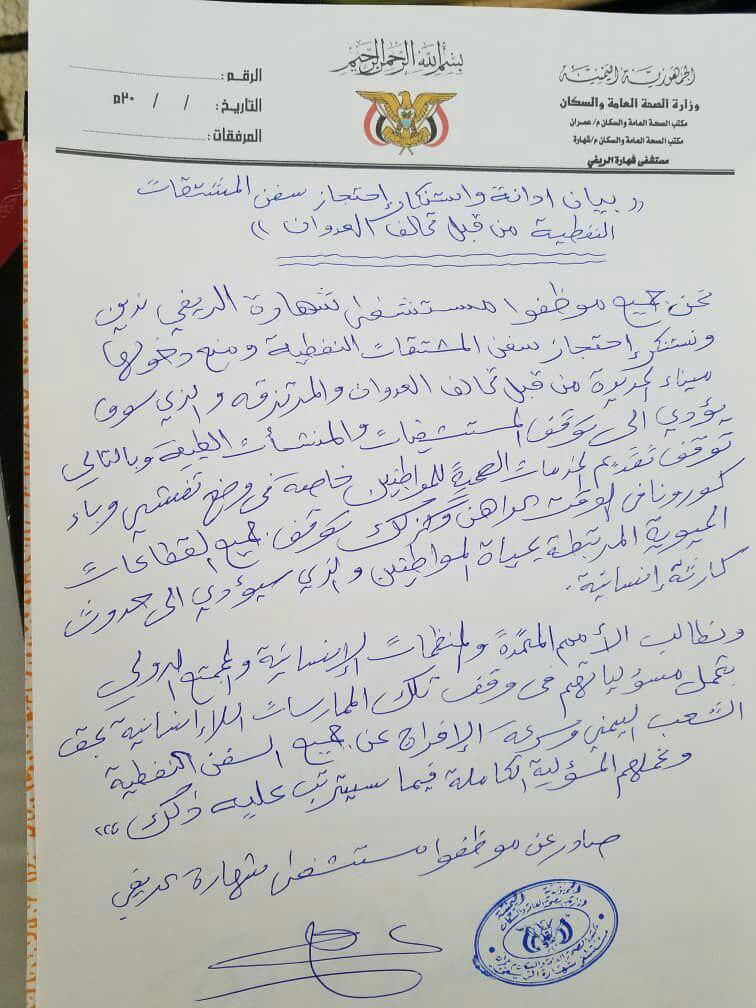 بسم الله الرحمن الرحيم
الجمهورية اليمنية
وزارة الصحة العامة والسكان
مكتب الصحة العامة والسكان م/عمران
مكتب الصحة العامة والسكان م/شهارة
مستشفى شهارة الريفي
الرقم:
التاريخ: / / ٢٠م
المرفقات:
(( بيان ادانة واستنكار إحتجاز سفن المشتقات
النفطية من قبل تحالف العدوان ))
نحن جميع موظفوا مستشفى شهارة الريفي ندين
ونستنكر إحتجاز سفن المشتقات النفطية ومنع دخولها
ميناء الحديدة من قبل تحالف العدوان والمرتزقه والذي سوف
يؤدي الى توقف المستشفيات والمنشأت الطبية وبالتالي
توقف تقديم الخدمات الصحية للمواطنين خاصة في وضع تفشي وباء
كورونا في الوقت الراهن وكذلك توقف جميع القطاعات
الحيوية المرتبطة بحياة المواطنين والذي سيؤدي الى حدوث
كارثة إنسانية.
ونطالب الأمم المتحدة والمنظمات الإنسانية والمجتمع الدولي
بتحمل مسؤلياتهم في وقف تلك الممارسات اللاإنسانية بحق
الشعب اليمني وسرعة الإفراج عن جميع السفن النفطية
ونحملهم المسؤلية الكاملة فيما سيترتب عليه ذلك ،،،
صادر عن موظفوا مستشفى شهارة الريفي
الجمهورية اليمنية
وزارة الصحة العامة والسكان
مستشفى شهارة الريفي